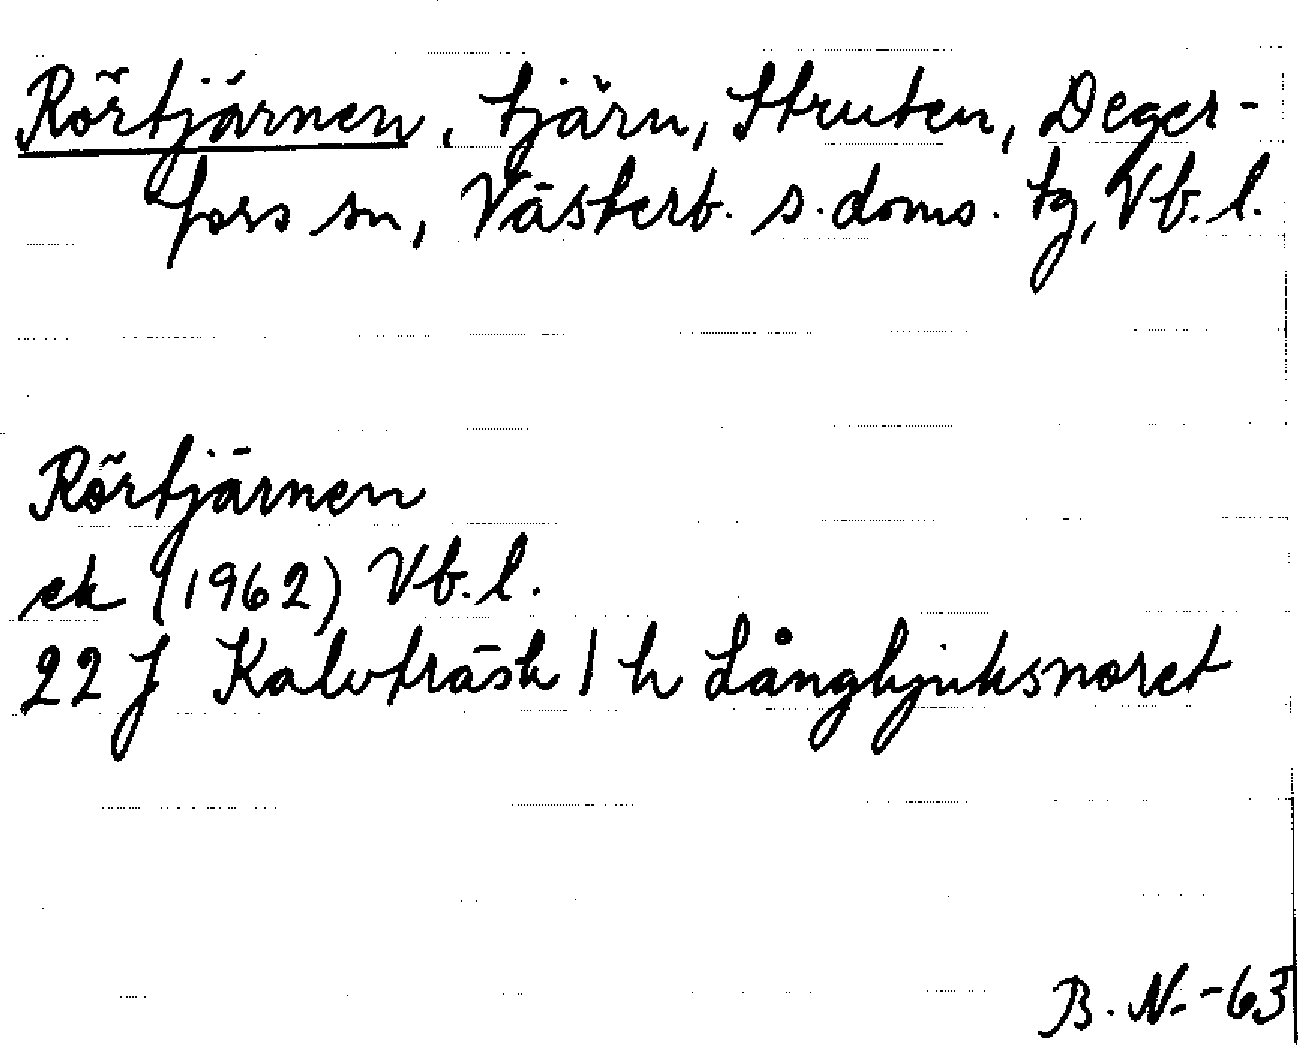 Rörtjärnen, tjärn, Struten, Deger-
fors sn, Västerb. s. doms. tg, Vb. l.
Rörtjärnen
ek (1962) Vb. l.
22 J Kalvträsk / h Långbjuksnoret
B. N. -63